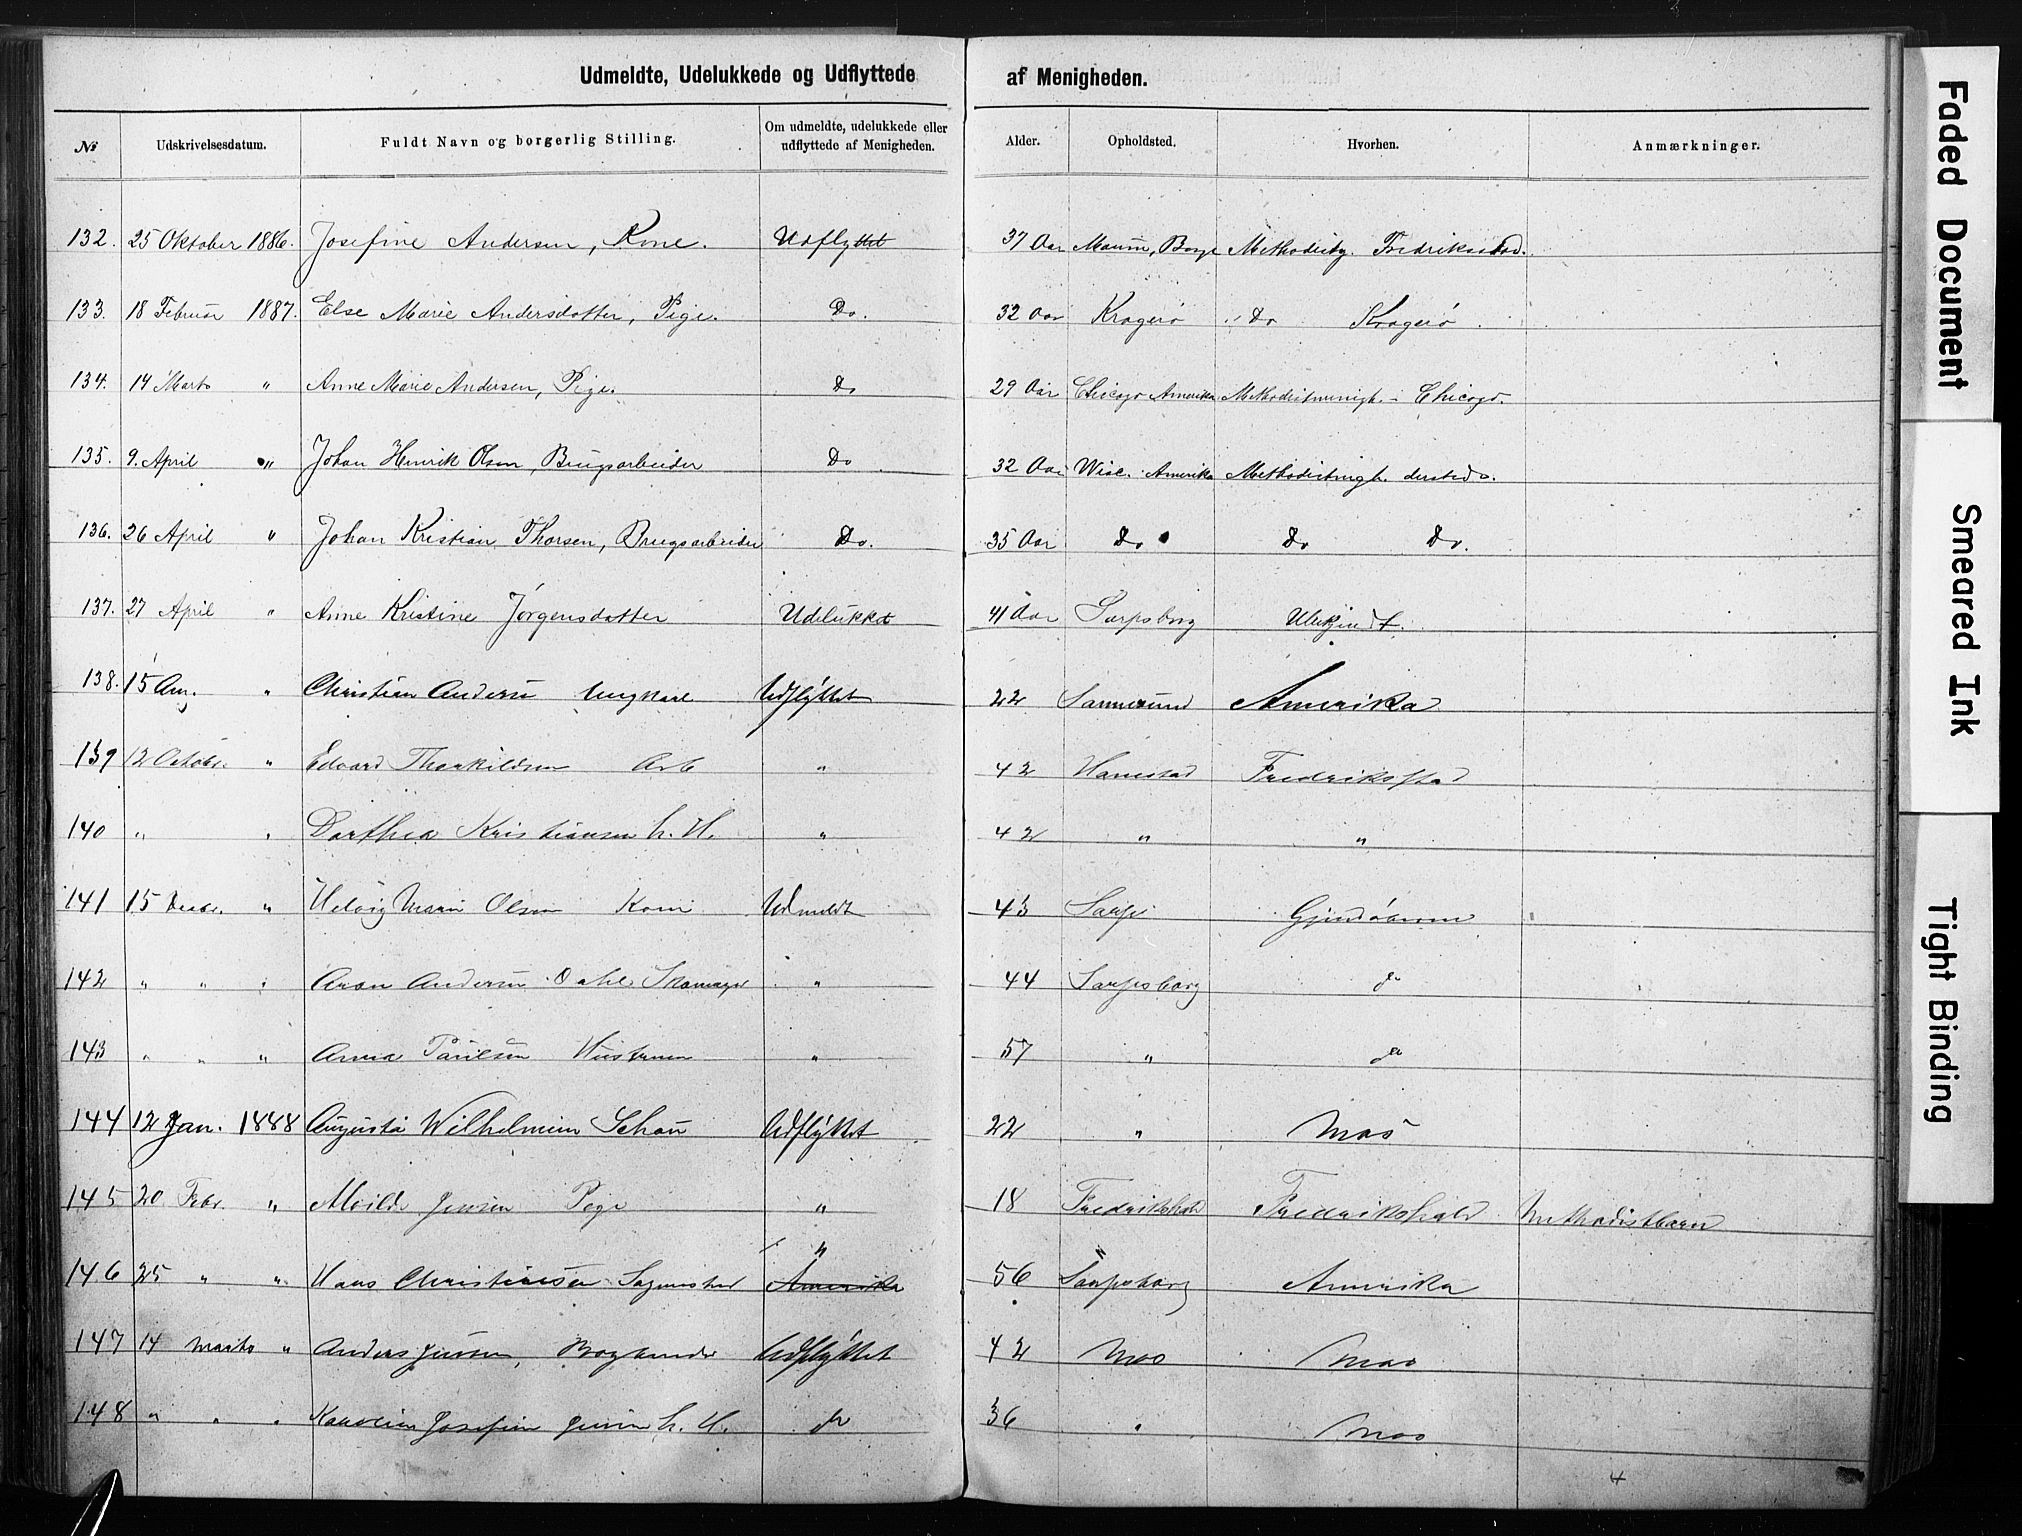 Udmeldte, Udelukkede og Udflyttede af Menigheden.
№ Udskrivelsesdatum. Fuldt Navn og borgerlig Stilling. Om udmeldte, udelukkede eller udflyttede af Menigheden. Alder. Opholdsted. Hvorhen. Anmærkninger.
132. 25 Oktober 1886. Josefine Andersen, Kone. Udflyttet 37 Aar Borge Fredriksstad.
133. 18 Februar 1887. Else Marie Andersdatter, Pige. Do. 32 Aar Kragerø " Do Kragerø.
134. 14 Marts " Anne Marie Andersen, Pige. Do 29 Aar Chicago Amerika Methodistmenigh. i Chicago.
135. 9. April " Johan Henrik Olsen, Brugsarbeider Do 32 Aar Wisc. Amerika Methodistmigh. dersteds.
136. 26 April " Johan Kristian Thorsen, Brugsarbeider Do. 35 Aar Do Do Do.
137. 27 April " Anne Kristine Jørgensdatter Udelukket 41 Aar Sarpsborg Ubekjendt.
138. 15 Aug. " Christian Andersen Ungkarl Udflyttet 22 Sannesund Amerika
139 12 Octobr. " Edvard Thorkildsen Arb " 42 Hannestad Fredriksstad
140 " " Dorthea Kristiansen h. H. " 42 " "
141 15 Decbr. " Hedvig Marie Olsen Kone Udmeldt 43 Sarps
142 " " " Aron Andersen Dahl Skomager " 44 Sarpsborg do
143 " " " Anna Paulsen Hustruen " 57 " do
144 12 Jan. 1888 Augusta Wilhelmine Schou Udflyttet 22 " Mos
145 20 Febr. " Jensen Pige " 18 Fredrikshald Fredrikshald Methodistbarn
146 25 " " Hans Christiansen Amerika " 56 Sarpsborg Amerika
147 14 Marts " Anders Jensen, Bogbinder Udflyttet 42 Mos Mos
148 " " " Josefine Jensen h. H. do 36 " Mos
Faded Document
Smeared Ink
Tight Binding